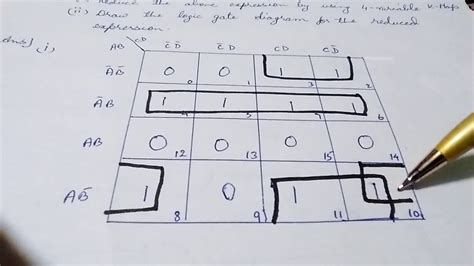 (i) Reduce the above expression by using 4-variable K-Map
(ii) Draw the logic gate diagram for the reduced
expression.
(i)
CD
AB C̄D̄ C̄D CD CD̄
ĀB̄ 0 0 0 1 1 1 3 1 2
ĀB 1 4 1 5 1 7 1 6
AB 0 12 0 13 0 15 0 14
AB̄ 1 8 0 9 1 11 1 10